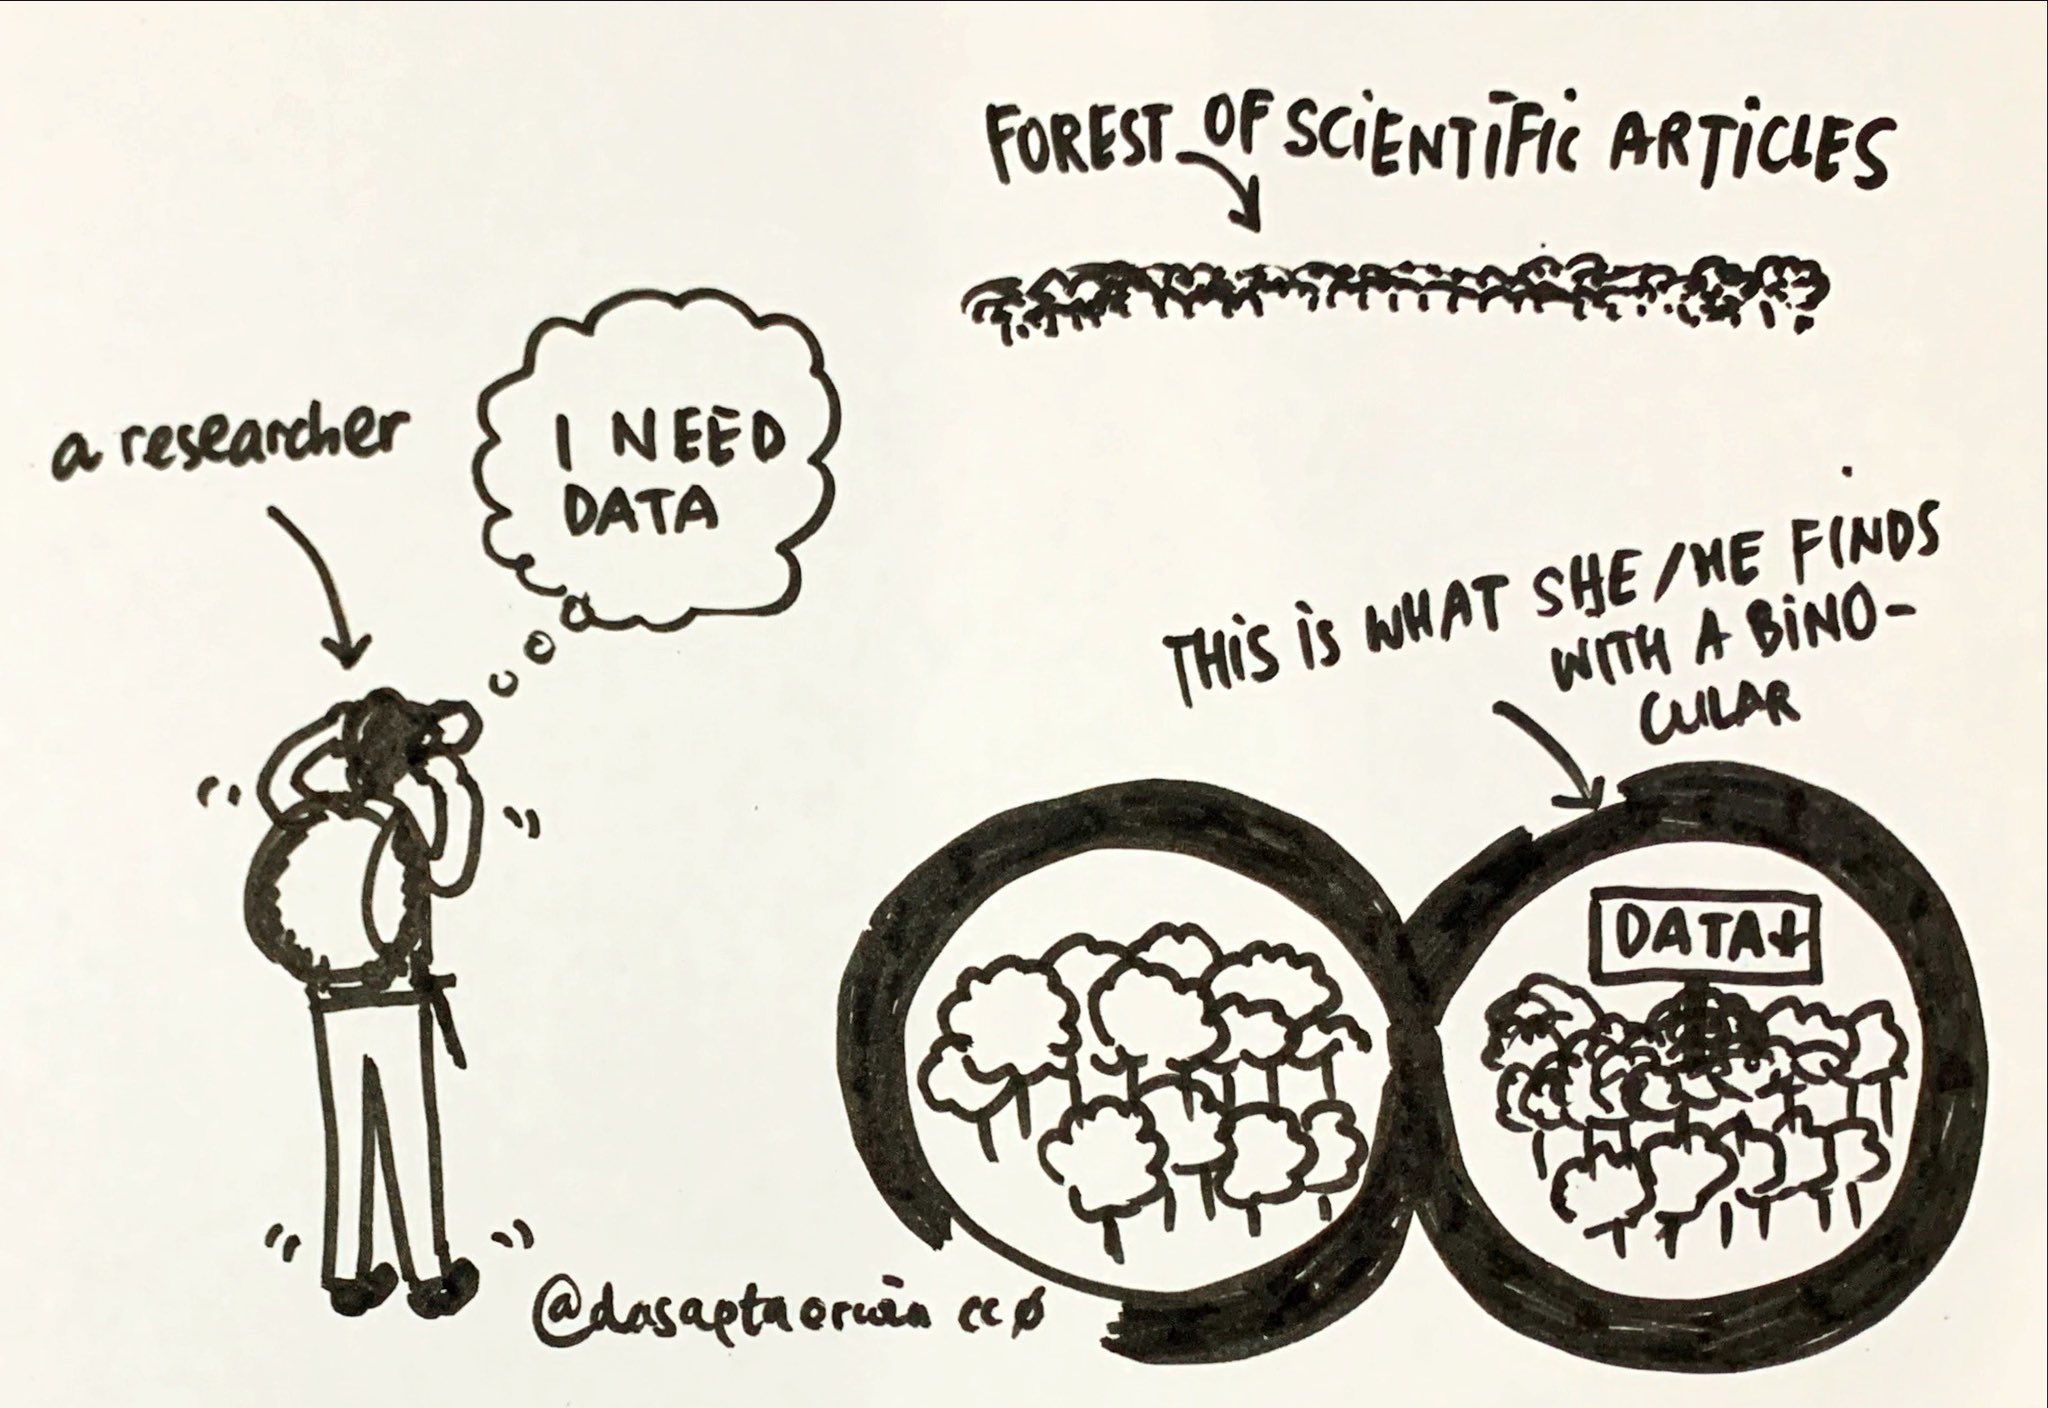 FOREST OF SCIENTIFIC ARTICLES
a researcher
I NEED
DATA
THIS IS WHAT SHE/HE FINDS
WITH A BINO-
CULAR
DATA↓
@dasaptaerwin cc0